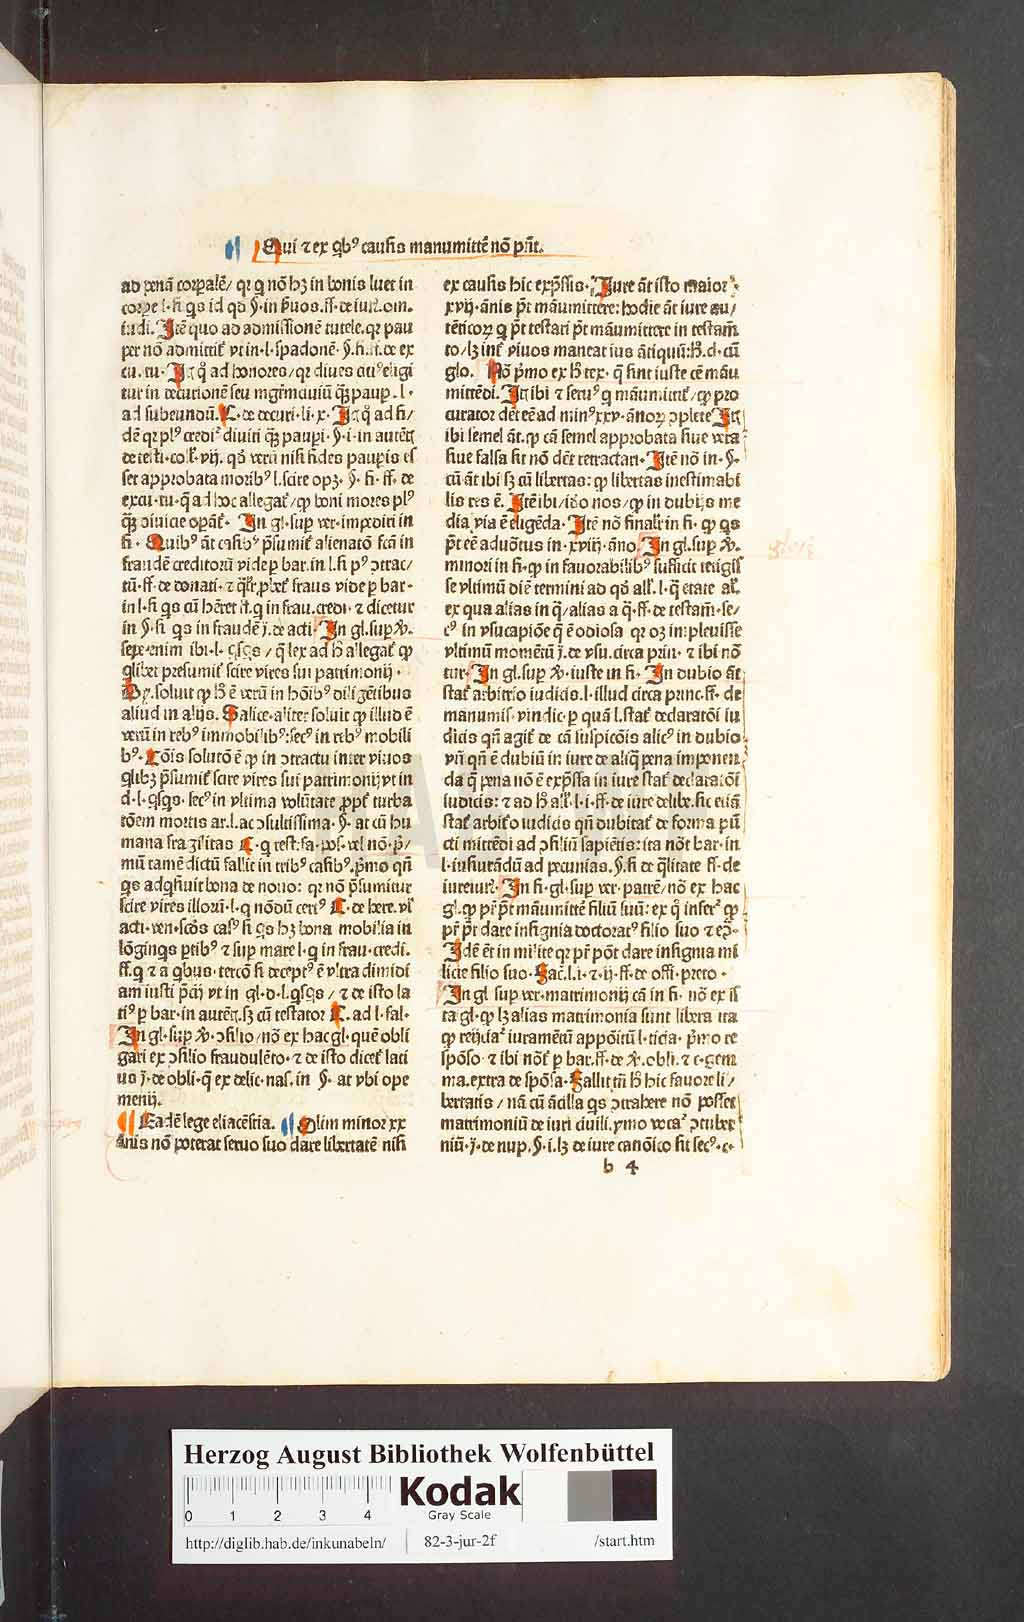 Qui ⁊ ex qbꝰ causis manumittē nō pn̄t.
ad penā corpalē/ qꝛ q nō hꝫ in bonis luet in
corpe l. fi. qs id qd §. in p̄uos. ff. de iuri. om.
iudi. Itē quo ad admissionē tutele. qꝛ pau
per nō admittit᷑ vt in. l. spadonē. §. fi. ff. de ex
cu. tu. Itē q̄ ad honores/ qꝛ diues citiꝰ eligi
tur in decurionē seu mgr̄m ciuiū q̄ꝫ paup. l.
ad subeundū. C. de decuri. li. x. Itē q̄ ad fi/
dē qꝛ plꝰ credit᷑ diuiti q̄ꝫ paupi. §. i. in autēt̄
de testi. col̄. vij. qd̄ verū nisi fides paupis es
set approbata moribꝰ l. scire opꝫ. §. fi. ff. de
excu. tu. q̄ ad hoc allegat᷑/ ꝙ boni mores plꝰ
q̄ꝫ diuicie opāt᷑. In gl. sup ver. impediri in
fi. Quibꝰ āt casibꝰ p̄sumit᷑ alienatō fcā in
fraudē creditorū vide p bar. in l. fi pꝰ ɔtrac/
tū. ff. de donati. ⁊ qn̄ pbet᷑ fraus vide p bar.
in l. fi qs cū hēret it. q in frau. credi. ⁊ dicetur
in §. fi qs in fraudē j. de acti. In gl. sup v̄.
sepe. enim ibi. l. qsqs/ q̄ lex ad h̄ allegat᷑ ꝙ
qlibet presumit᷑ scire vires sui patrimonij.
Py. soluit ꝙ h̄ ē verū in hoībꝰ diligētibus
aliud in alijs. Salice. aliter soluit ꝙ illud ē
verū in rebꝰ immobilibꝰ: secꝰ in rebꝰ mobili
bꝰ. Cōis solutō ē ꝙ in ɔtractu inter viuos
qlibꝫ p̄sumit᷑ scire vires sui patrimonij vt in
d. l. qsqs. secꝰ in vltima volūtate ppt᷑ turba
tōem mortis ar. l. ac ɔsultissima. §. at cū hu
mana fragilitas C. q test. fa. pos. vel nō. p̄/
mū tamē dictū fallit in tribꝰ casibꝰ. p̄mo qn̄
qs adqsiuit bona de nouo: qꝛ nō p̄sumitur
scire vires illorū. l. q nōdū certꝰ C. de here. vl̄
acti. ven. scdōs casꝰ si qs hꝫ bona mobilia in
lōginqs ptibꝰ ⁊ sup mare l. q in frau. credi.
ff. q ⁊ a qbus. tercō si deceptꝰ ē vltra dimidi
am iusti p̄cij vt in gl. d. l. qsqs/ ⁊ de isto la
tiꝰ p bar. in autēt. sꝫ cū testator C. ad l. fal.
In gl. sup v̄. ɔsilio/ nō ex hac gl. quē obli
gari ex ɔsilio fraudulēto. ⁊ de isto dicet᷑ lati
us j. de obli. q̄ ex delic. nas. in §. at vbi ope
menij.
Eadē lege eliacēstia. Olim minor xx
ānis nō poterat seruo suo dare libertatē nisi
ex causis hic exp̄ssis. Iure āt isto maior
xvij. ānis pt māumittere: hodie āt iure au/
tēticoꝝ q pt testari pt māumittere in testam̄
to/ lꝫ int᷑ viuos maneat ius ātiquū: h̄. d. cū
glo. Nō p̄mo ex h̄ tex. q̄ sint iuste cē māu
mittēdi. Itē ibi ⁊ seruꝰ q māumittit᷑/ ꝙ pro
curator det eē ad minꝰ xxv. ānoꝝ ɔplete Itē
ibi semel āt. ꝙ cā semel approbata siue vera
siue falsa sit nō dēt retractari. Itē nō in. §.
cū āt ibi sꝫ cū libertas: ꝙ libertas inestimabi
lis res ē. Itē ibi/ idō nos/ ꝙ in dubijs me
dia via ē eligēda. Itē nō finalr̄ in fi. ꝙ qs
pt eē aduōtus in. xviij. āno. In gl. sup v̄.
minori in fi. ꝙ in fauorabilibꝰ sufficit tetigis
se vltimū diē termini ad qd̄ all̄. l. q̄ etate al̄.
ex qua alias in q̄/ alias a q̄. ff. de testam̄. se/
cꝰ in vsucapiōe q̄ ē odiosa qꝛ oꝫ impleuisse
vltimū momētū j. de vsu. circa prin. ⁊ ibi nō
tur. In gl. sup v̄. iuste in fi. In dubio āt
stat᷑ arbitrio iudicis. l. illud circa princ. ff. de
manumis. vindic. p quā l. stat᷑ declaratōi iu
dicis qn̄ agit᷑ de cā suspicōis alicꝰ in dubio
vn̄ qn̄ ē dubiū in iure de aliq̄ pena imponen
da q̄ pena nō ē exp̄ssa in iure stat᷑ declaratōi
iudicis: ⁊ ad h̄ all̄. l. i. ff. de iure delibe. sic etiā
stat᷑ arbitrio iudicis qn̄ dubitat᷑ de forma pu
cti mittēdi ad ɔsiliū sapiētis: ita nōt bar. in
l. iusiurādū ad pecunias. §. fi de q̄litate ff. de
iureiur̄. In fi. gl. sup ver. patrē/ nō ex hac
gl. ꝙ pr̄ pt māumittē filiū suū: ex q̄ infert᷑ ꝙ
pr̄ pt dare insignia doctoratꝰ filio suo ⁊ eꝯ.
Idē ēt in milite qꝛ pr̄ pōt dare insignia mi
licie filio suo. Fac̄. l. i. ⁊. ij. ff. de offi. preto.
In gl sup ver. matrimonij cā in fi. nō ex is
ta gl. ꝙ lꝫ alias matrimonia sunt libera ita
ꝙ reijciat᷑ iuramētū appōitū l. ticia. p̄mo re
spōso. ⁊ ibi nōt᷑ p bar. ff. de v̄. obli. ⁊ c. gem
ma. extra de spōsa. Fallit tn̄ h̄ hic fauore li/
bertatis/ nā cū ācilla qs ɔtrahere nō posset
matrimoniū de iuri ciuili. ymo vocat᷑ ɔtuber
niū. j. de nup. §. i. lꝫ de iure canōico sit secꝰ. c.
b 4
Herzog August Bibliothek Wolfenbüttel
0 1 2 3 4
Kodak
Gray Scale
http://diglib.hab.de/inkunabeln/ 82-3-jur-2f /start.htm